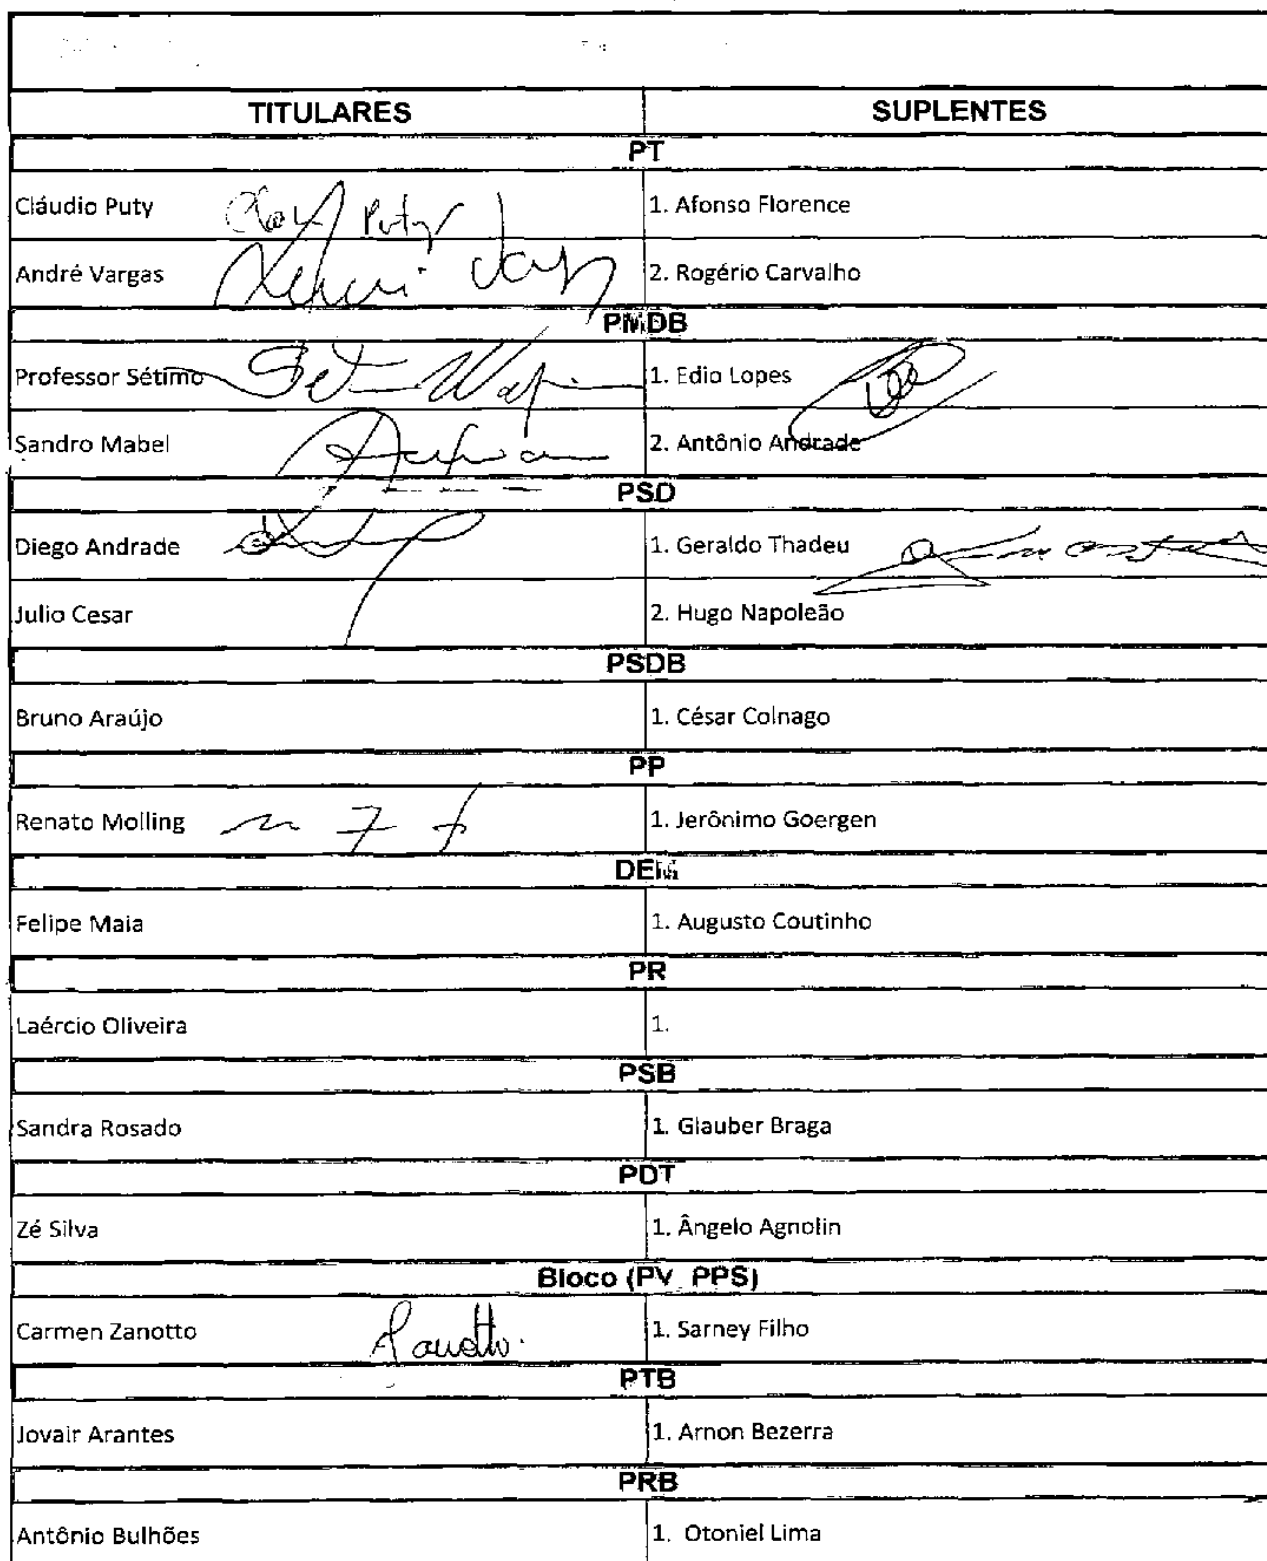 TITULARES SUPLENTES
PT
Cláudio Puty Puty 1. Afonso Florence
André Vargas 2. Rogério Carvalho
PMDB
Professor Sétimo 1. Edio Lopes
Sandro Mabel 2. Antônio Andrade
PSD
Diego Andrade 1. Geraldo Thadeu
Julio Cesar 2. Hugo Napoleão
PSDB
Bruno Araújo 1. César Colnago
PP
Renato Molling 1. Jerônimo Goergen
DEM
Felipe Maia 1. Augusto Coutinho
PR
Laércio Oliveira 1.
PSB
Sandra Rosado 1. Glauber Braga
PDT
Zé Silva 1. Ângelo Agnolin
Bloco (PV, PPS)
Carmen Zanotto 1. Sarney Filho
PTB
Jovair Arantes 1. Arnon Bezerra
PRB
Antônio Bulhões 1. Otoniel Lima